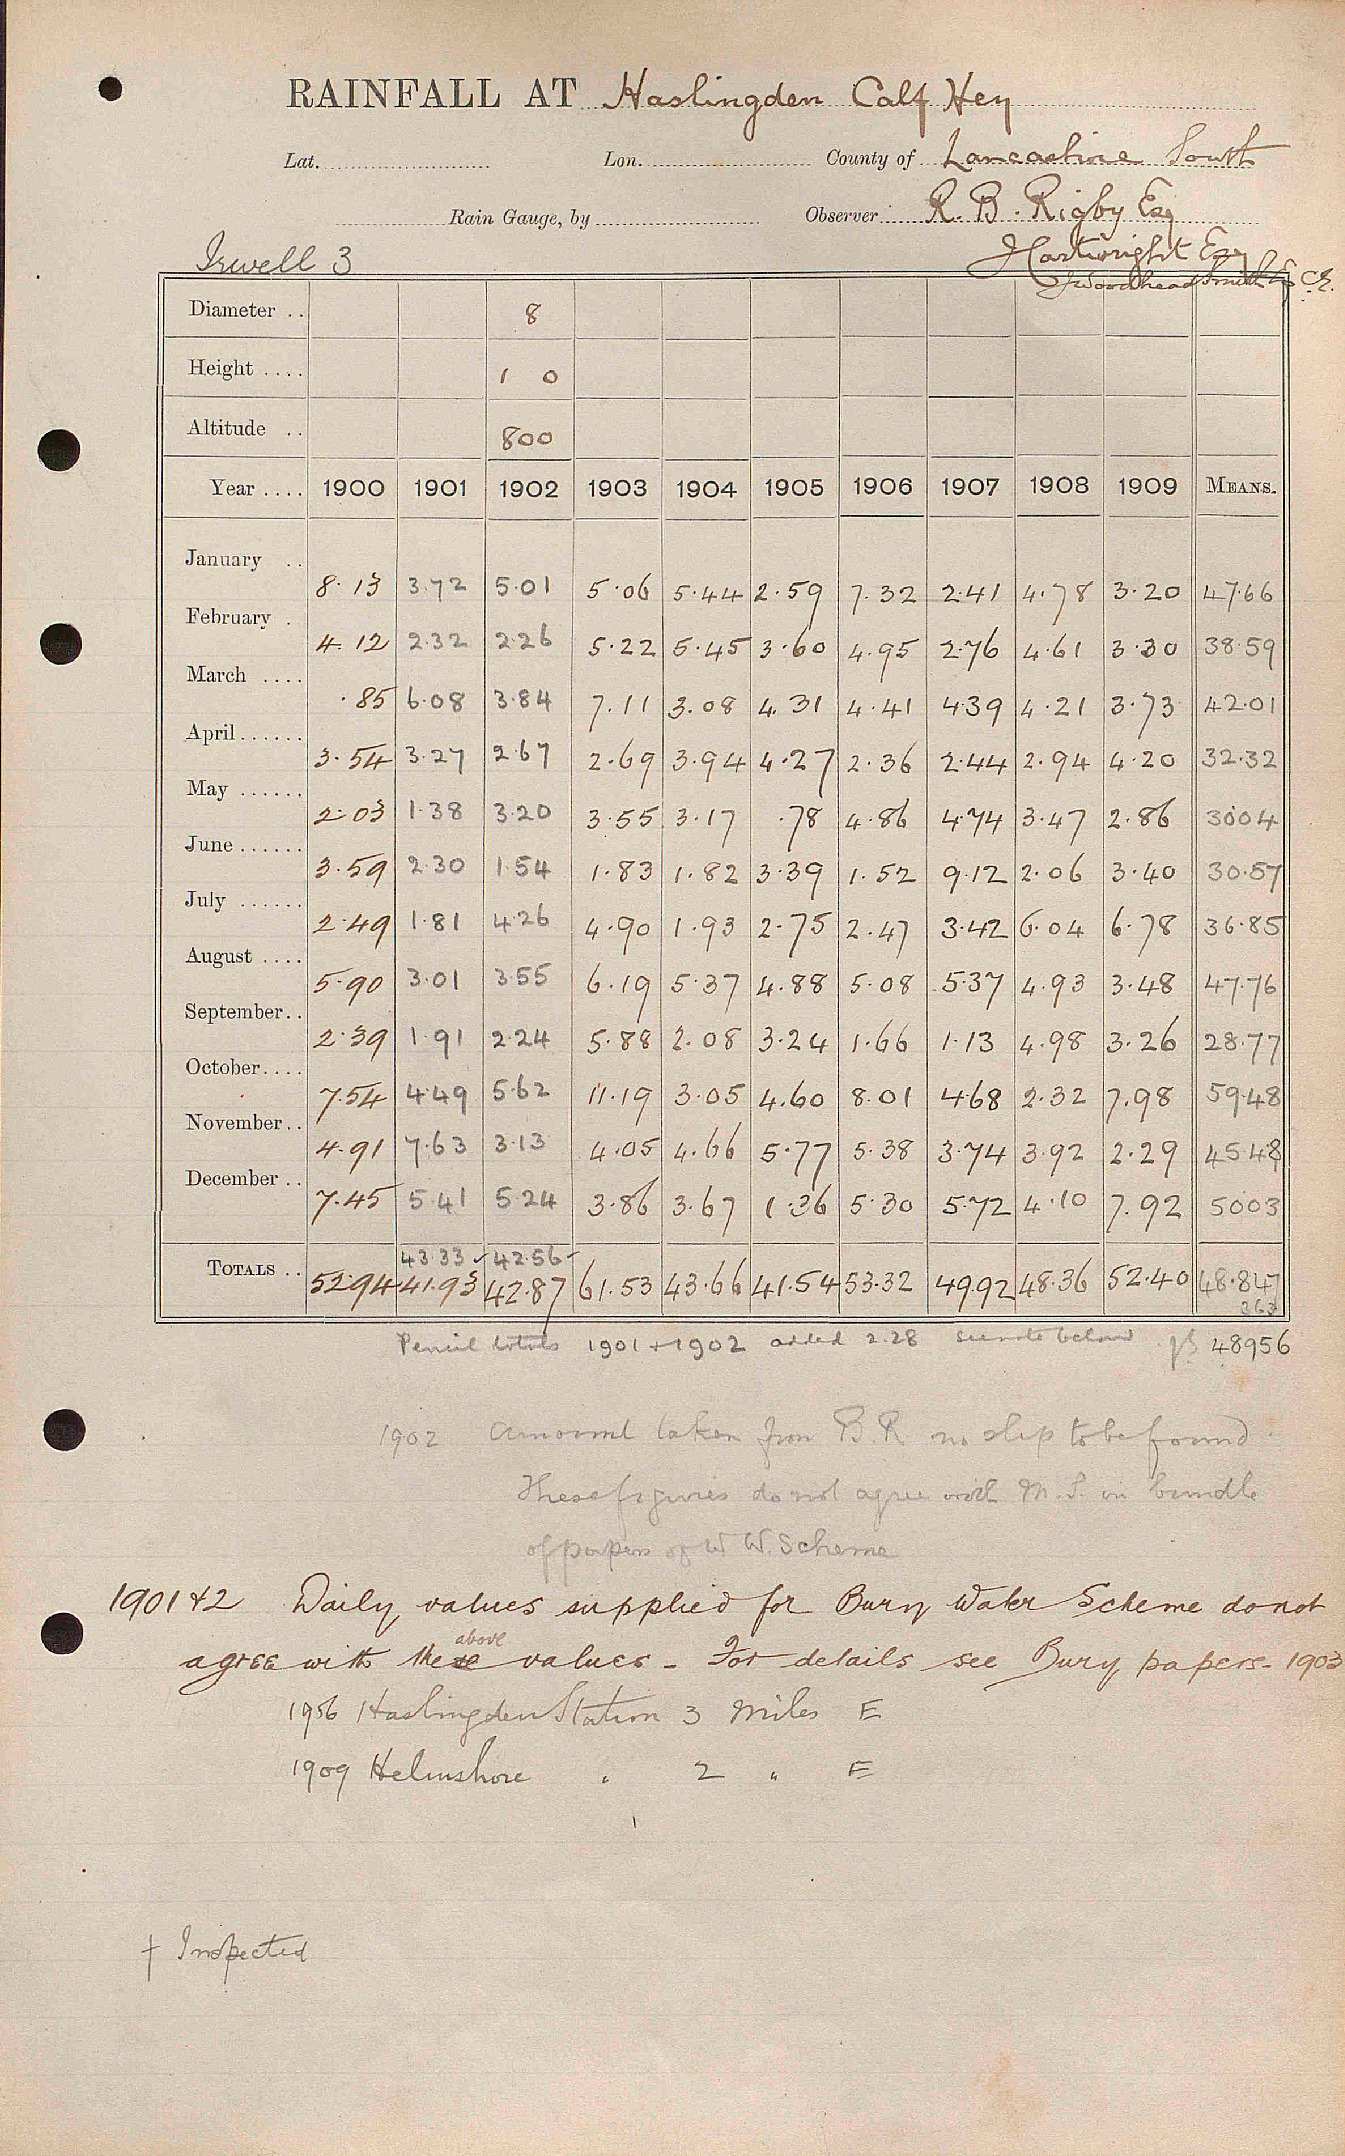 RAINFALL AT Haslingden Calf Hey
Lat. Lon. County of Lancashire South
Rain Gauge, by Observer R. B. Rigby Esq
Irwell 3 J Cartwright Esq
J Woodhead Smith Esq C.E.
Diameter .. 8
Height .... 1 0
Altitude .. 800
Year .... 1900 1901 1902 1903 1904 1905 1906 1907 1908 1909 MEANS.
January .. 8.13 3.72 5.01 5.06 5.44 2.59 7.32 2.41 4.78 3.20 47.66
February . 4.12 2.32 2.26 5.22 5.45 3.60 4.95 2.76 4.61 3.30 38.59
March .... .85 6.08 3.84 7.11 3.08 4.31 4.41 4.39 4.21 3.73 42.01
April...... 3.54 3.27 2.67 2.69 3.94 4.27 2.36 2.44 2.94 4.20 32.32
May ...... 2.03 1.38 3.20 3.55 3.17 .78 4.86 4.74 3.47 2.86 30.04
June...... 3.59 2.30 1.54 1.83 1.82 3.39 1.52 9.12 2.06 3.40 30.57
July ...... 2.49 1.81 4.26 4.90 1.93 2.75 2.47 3.42 6.04 6.78 36.85
August .... 5.90 3.01 3.55 6.19 5.37 4.88 5.08 5.37 4.93 3.48 47.76
September.. 2.39 1.91 2.24 5.88 2.08 3.24 1.66 1.13 4.98 3.26 28.77
October.... 7.54 4.49 5.62 11.19 3.05 4.60 8.01 4.68 2.32 7.98 59.48
November.. 4.91 7.63 3.13 4.05 4.66 5.77 5.38 3.74 3.92 2.29 45.48
December .. 7.45 5.41 5.24 3.86 3.67 1.36 5.30 5.72 4.10 7.92 50.03
43.33 42.56
TOTALS .. 52.94 41.93 42.87 61.53 43.66 41.54 53.32 49.92 48.36 52.40 48.847
Pencil totals 1901 + 1902 added 2.28 see note below 48956
1902 Amount taken from B.R no slip to be found
These figures do not agree with M.S. in bundle
of papers of W W. Scheme
1901 & 2 Daily values supplied for Bury Water Scheme do not
above
agree with these values - For details see Bury papers - 1903
1906 Haslingden Station 3 Miles E
1909 Helmshore " 2 " E
† Inspected